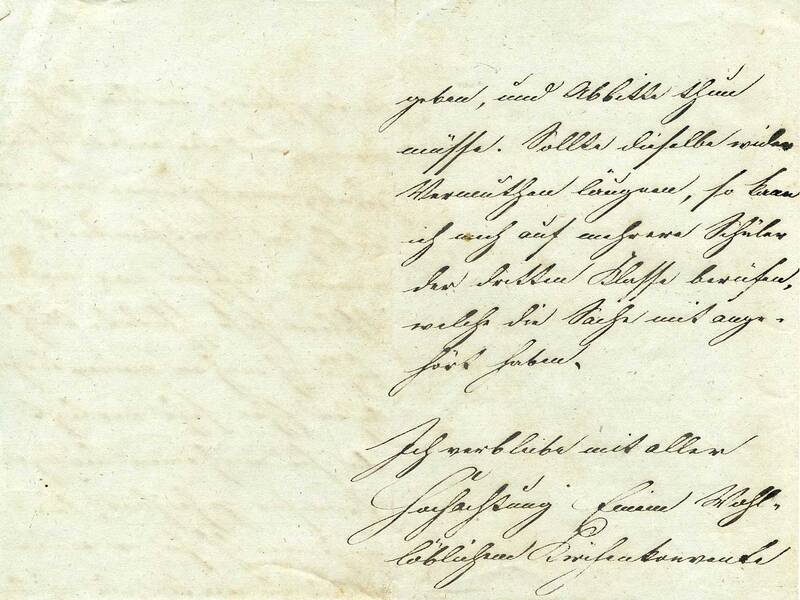 geben, und Abbitte thun
müsse. Sollte dieselbe wider
Vermuthen läugnen, so kann
ich mich auf mehrere Schüler
der dritten Klasse berufen,
welche die Sache mit ange-
hört haben.
Ich verbleibe mit aller
Hochachtung Einem Wohl-
löblichem Kirchenkonvente